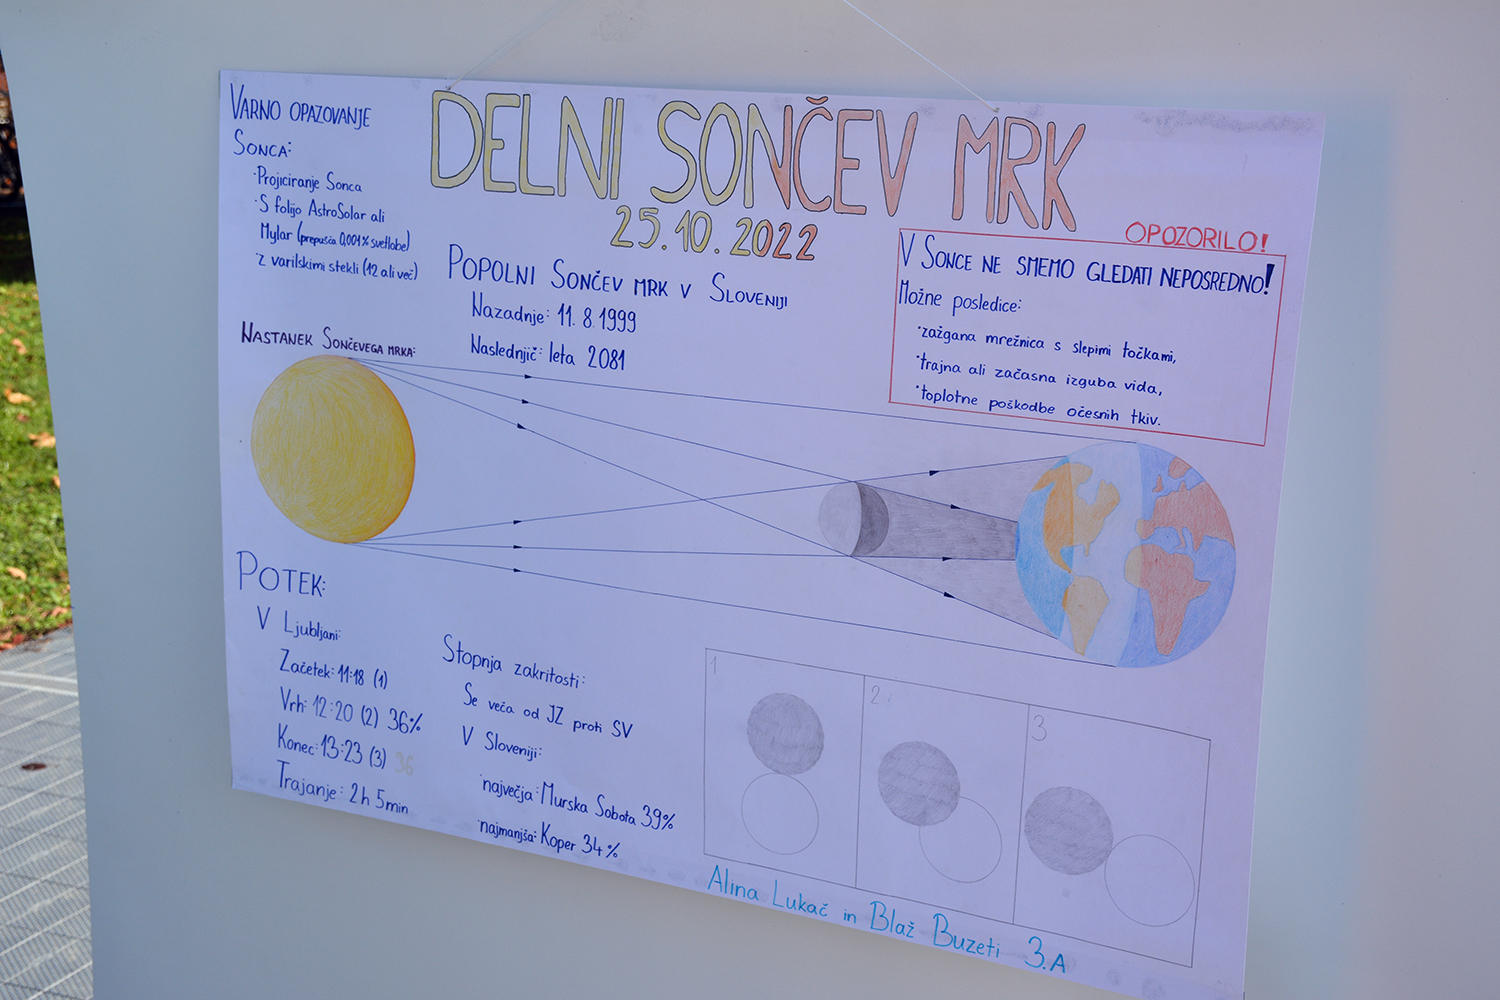 DELNI SONČEV MRK
25.10.2022
VARNO OPAZOVANJE
SONCA:
·Projiciranje Sonca
·S folijo AstroSolar ali
Mylar (prepušča 0,001% svetlobe)
·z varilskimi stekli (12 ali več)
POPOLNI SONČEV MRK V SLOVENIJI
Nazadnje: 11. 8. 1999
Naslednjič: leta 2081
OPOZORILO!
V SONCE NE SMEMO GLEDATI NEPOSREDNO!
Možne posledice:
·zažgana mrežnica s slepimi točkami,
·trajna ali začasna izguba vida,
·toplotne poškodbe očesnih tkiv.
NASTANEK SONČEVEGA MRKA:
POTEK:
V Ljubljani:
Začetek: 11:18 (1)
Vrh: 12:20 (2) 36%
Konec: 13:23 (3) 36
Trajanje: 2h 5min
Stopnja zakritosti:
Se veča od JZ proti SV
V Sloveniji:
·največja: Murska Sobota 39%
·najmanjša: Koper 34%
1
2
3
Alina Lukač in Blaž Buzeti 3.A